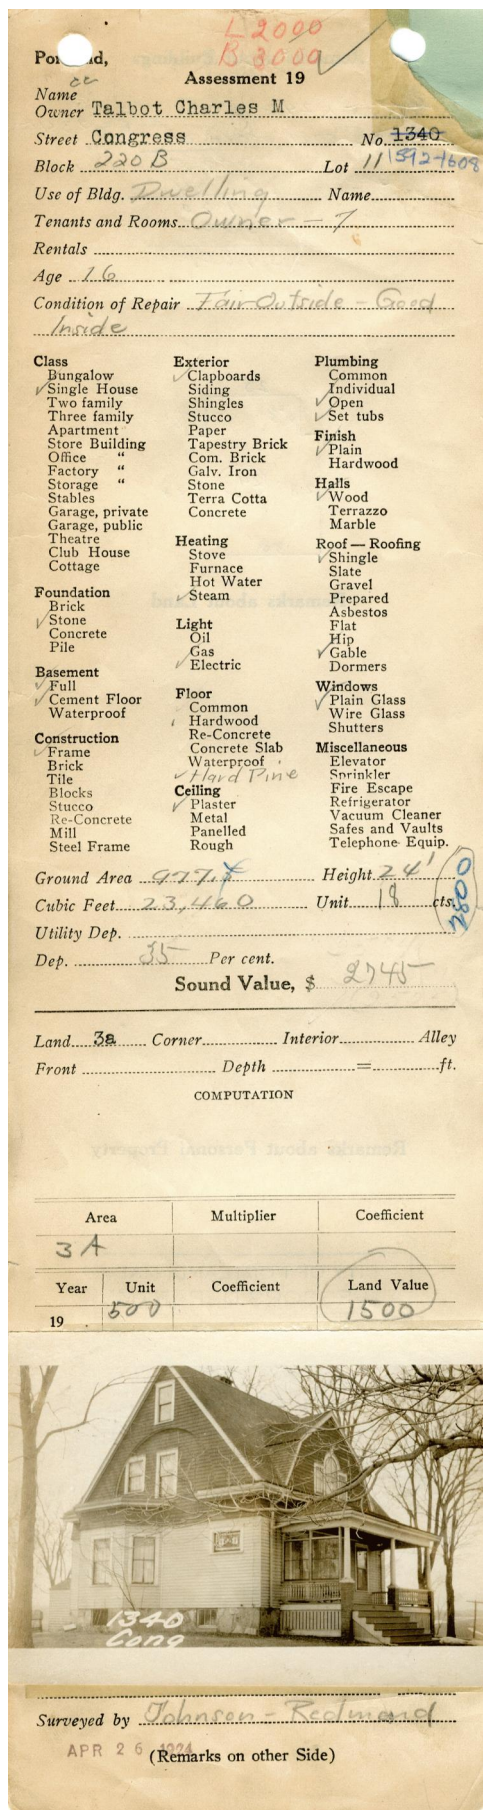 L 2000
B 3000
Por nd,
Assessment 19
Name
Owner Talbot Charles M
Street Congress No. 1340
Block 220 B Lot 11 1592-1608
Use of Bldg. Dwelling Name
Tenants and Rooms Owner - 7
Rentals
Age 16
Condition of Repair Fair Outside - Good
Inside
Class
Bungalow
✓ Single House
Two family
Three family
Apartment
Store Building
Office "
Factory "
Storage "
Stables
Garage, private
Garage, public
Theatre
Club House
Cottage
Foundation
Brick
✓ Stone
Concrete
Pile
Basement
✓ Full
✓ Cement Floor
Waterproof
Construction
✓ Frame
Brick
Tile
Blocks
Stucco
Re-Concrete
Mill
Steel Frame
Exterior
✓ Clapboards
Siding
Shingles
Stucco
Paper
Tapestry Brick
Com. Brick
Galv. Iron
Stone
Terra Cotta
Concrete
Heating
Stove
Furnace
Hot Water
✓ Steam
Light
Oil
✓ Gas
✓ Electric
Floor
Common
Hardwood
Re-Concrete
Concrete Slab
Waterproof
✓ Hard Pine
Ceiling
✓ Plaster
Metal
Panelled
Rough
Plumbing
Common
Individual
✓ Open
✓ Set tubs
Finish
✓ Plain
Hardwood
Halls
✓ Wood
Terrazzo
Marble
Roof — Roofing
✓ Shingle
Slate
Gravel
Prepared
Asbestos
Flat
Hip
✓ Gable
Dormers
Windows
✓ Plain Glass
Wire Glass
Shutters
Miscellaneous
Elevator
Sprinkler
Fire Escape
Refrigerator
Vacuum Cleaner
Safes and Vaults
Telephone Equip.
Ground Area 977. Height 24'
Cubic Feet 23,460 Unit 18 cts.
2800
Utility Dep.
Dep. 35 Per cent.
Sound Value, $ 2745
Land 3a Corner Interior Alley
Front Depth = ft.
COMPUTATION
Area Multiplier Coefficient
3 A
Year Unit Coefficient Land Value
19 500 1500
1340
Cong
Surveyed by Johnson - Redmond
APR 26 1924
(Remarks on other Side)